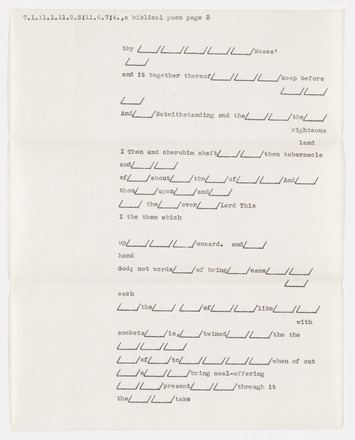 7.1.11.1.11.9.3!11.6.7!4.,a biblical poem page 3
thy /____//____//____//____//____/Moses'
/____/
and it together thereof/____//____//____/keep before
/____//____/
/____/
And/____/Notwithstanding and the/____//____/the/____/
righteous
land
I Then and cherubim shaft/____//____/thou tabernacle
and/____//____/
of/____/about/____/the/____/of/____//____/And/____/
thou/____/upon/____/and/____/
/____/ the/____/ever/____/Lord This
I the them which
up/____//____//____/onward. and/____/
hand
God; not words/____/of bring/____/came/____//____/
/____/
each
/____/the/____/ /____/of/____/like/____//____/
with
sockets/____/is,/____/twined/____//____/the the
/____//____//____//____/
/____/of/____/to/____//____//____//____/when of out
/____/a/____//____/bring meal-offering
/____//____/present/____//____/through it
the/____//____/take